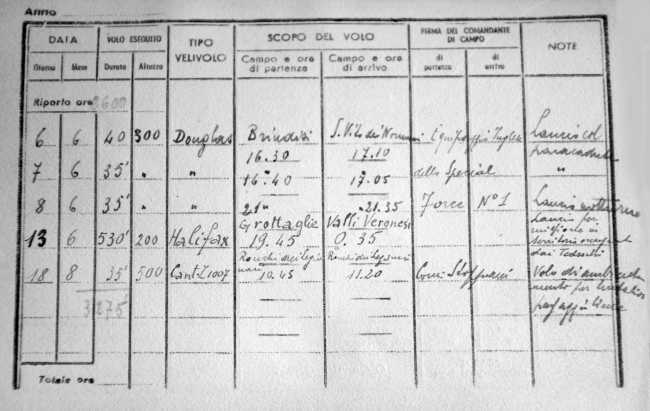 Anno
DATA VOLO ESEGUITO TIPO VELIVOLO SCOPO DEL VOLO FIRMA DEL COMANDANTE DI CAMPO NOTE
Giorno Mese Durata Altezza Campo e ora di partenza Campo e ora di arrivo di partenza di arrivo
Riporto ore 2600
6 6 40 300 Douglas Brindisi S. Vito dei Normanni Equipaggio Inglese Lancio col
16.30 17.10 paracadute
7 6 35' " " 16.40 17.05 dello Special "
8 6 35' " " 21" 21.35 Force N°1 Lancio notturno
13 6 530' 200 Halifax Grottaglie Valli Veronesi Lancio per
19.45 0.35 missione in
territorio occupato
dai Tedeschi
18 8 35' 500 Cant Z 1007 Ronchi dei Legionari Ronchi dei Legionari Volo di
10.45 11.20 per
3275
Totale ore